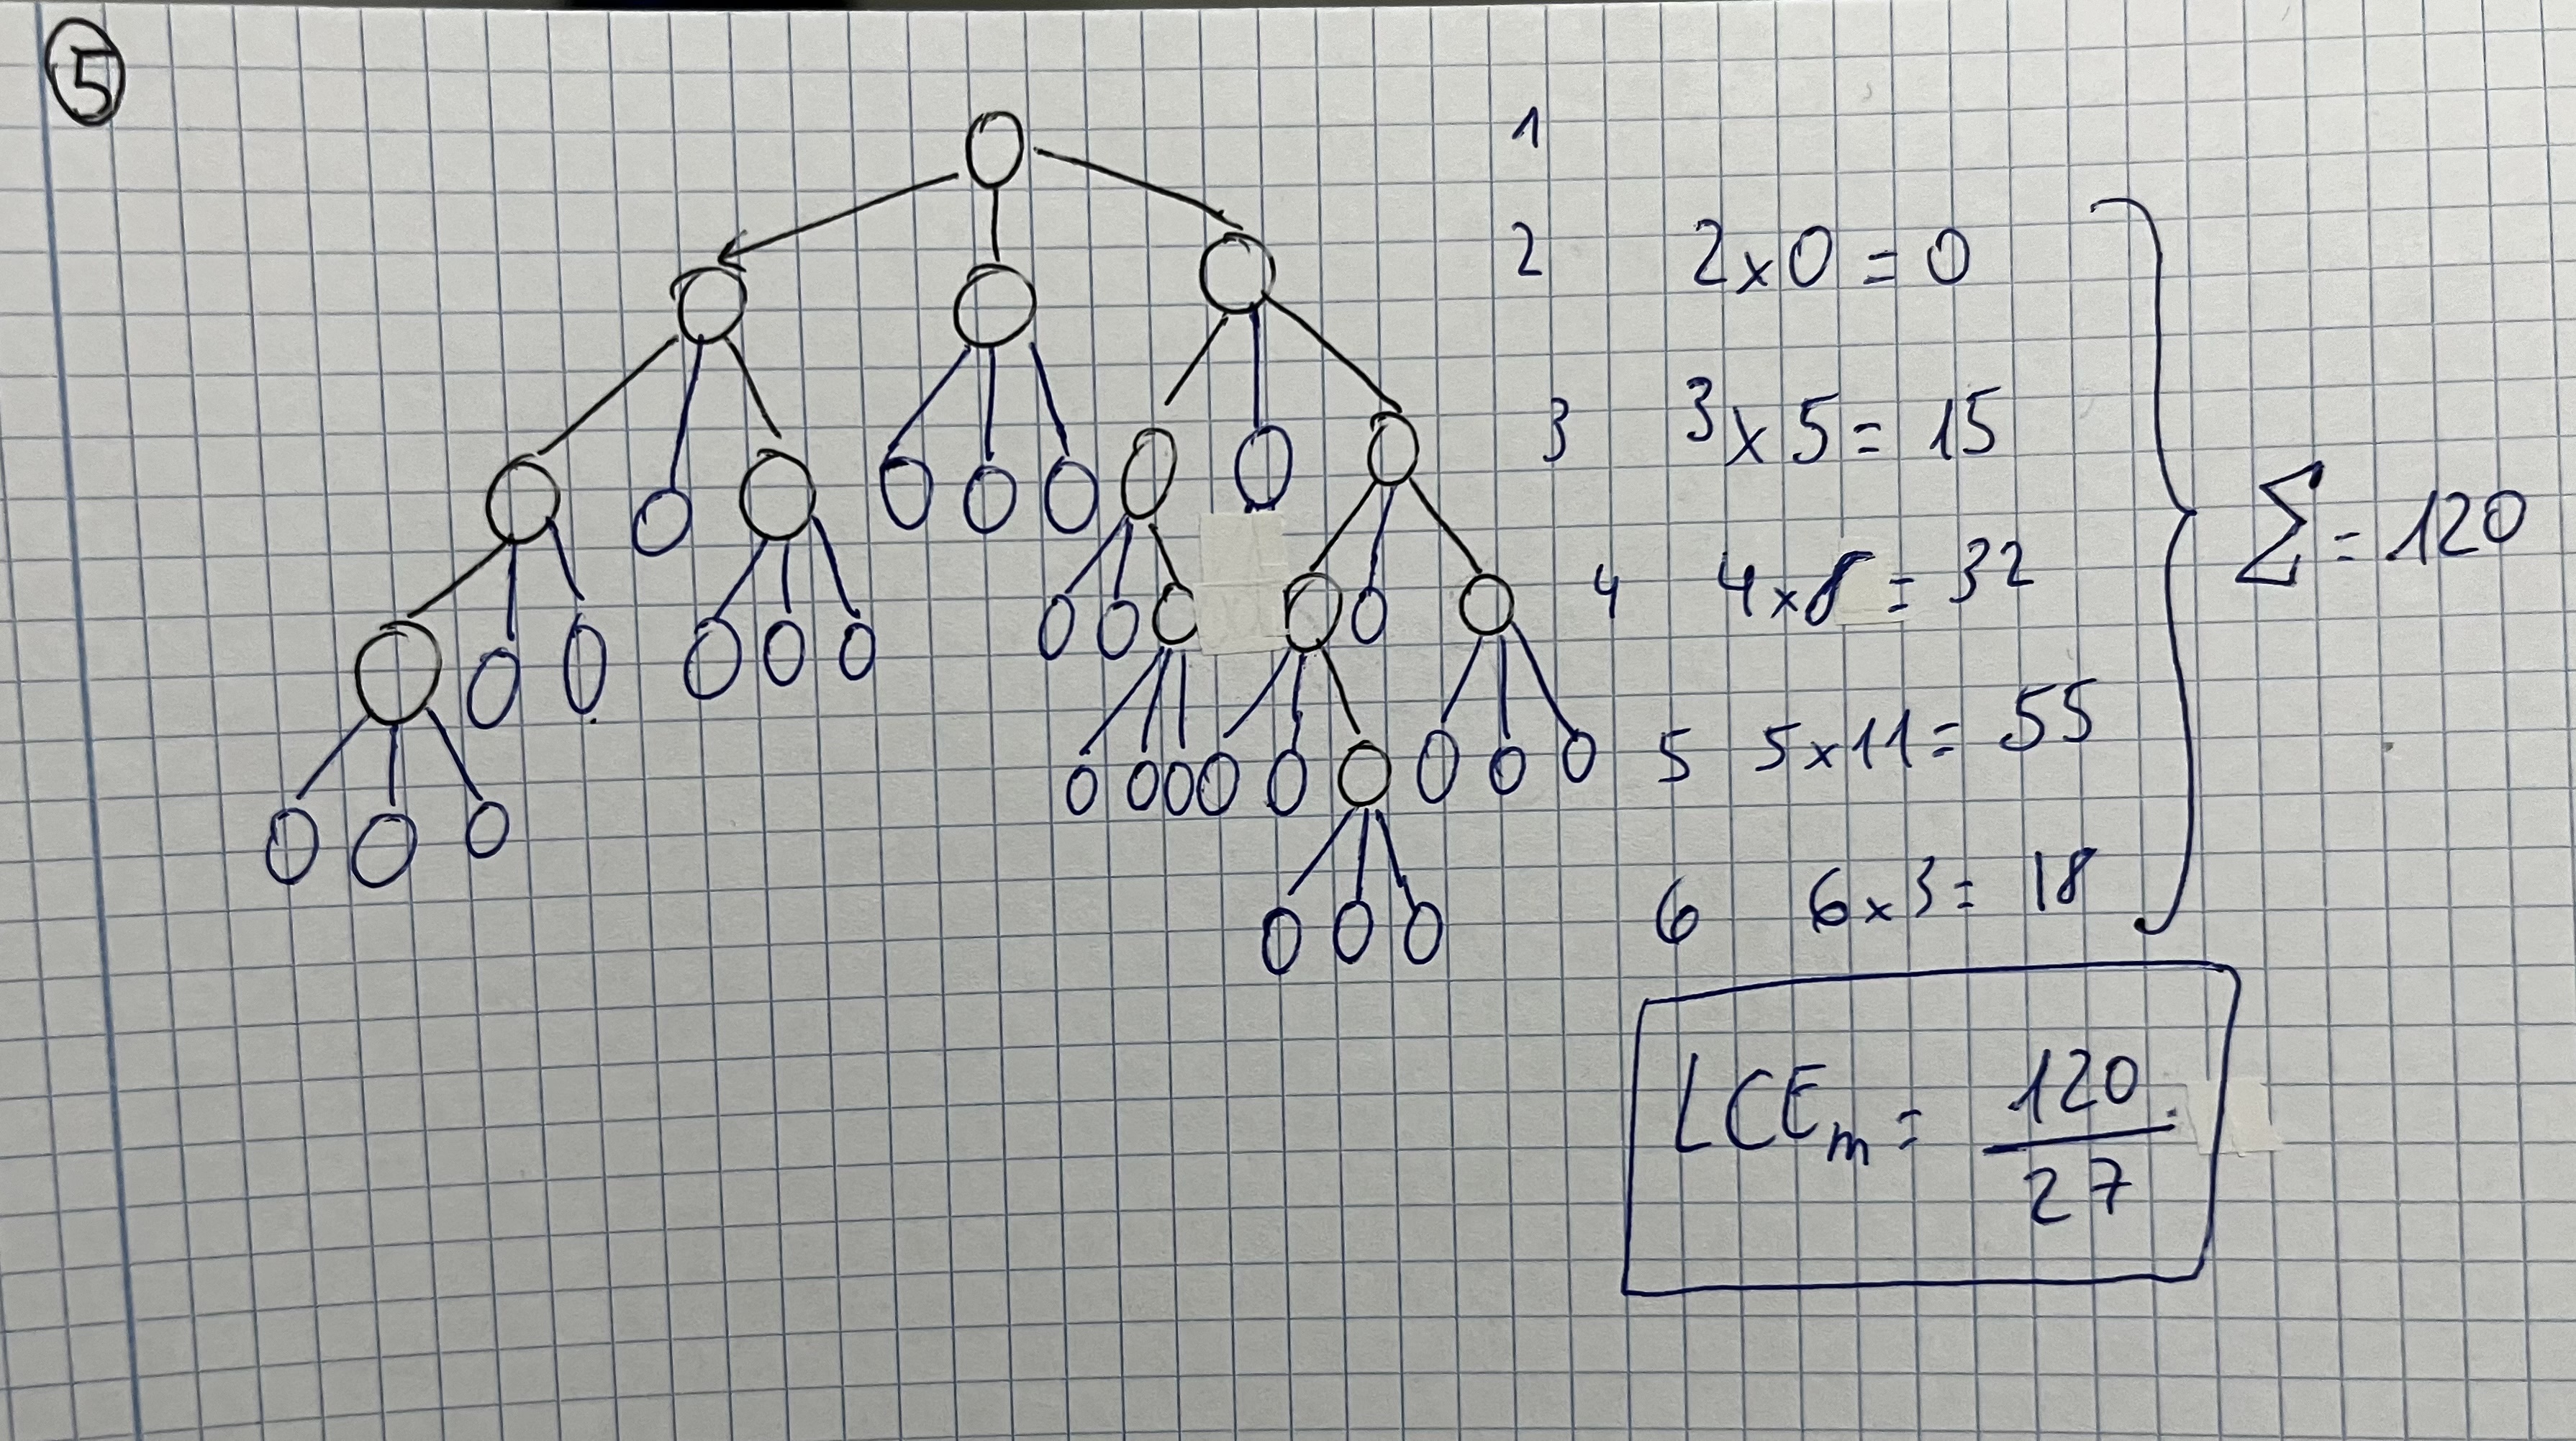 5
1
2 2x0 = 0
3 3x5 = 15
4 4x8 = 32
5 5x11 = 55
6 6x3 = 18
Σ = 120
LCEm = 120
27